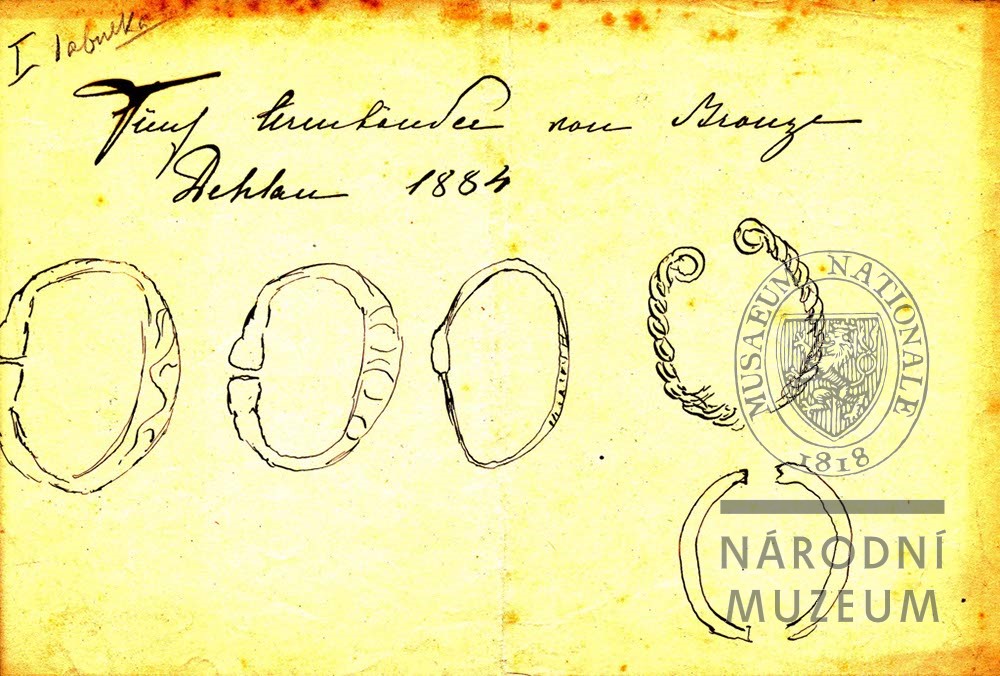 I tabulka
Fünf Armbänder von Bronze
Dehlau 1884
MUSAEUM NATIONALE
1818
NÁRODNÍ
MUZEUM